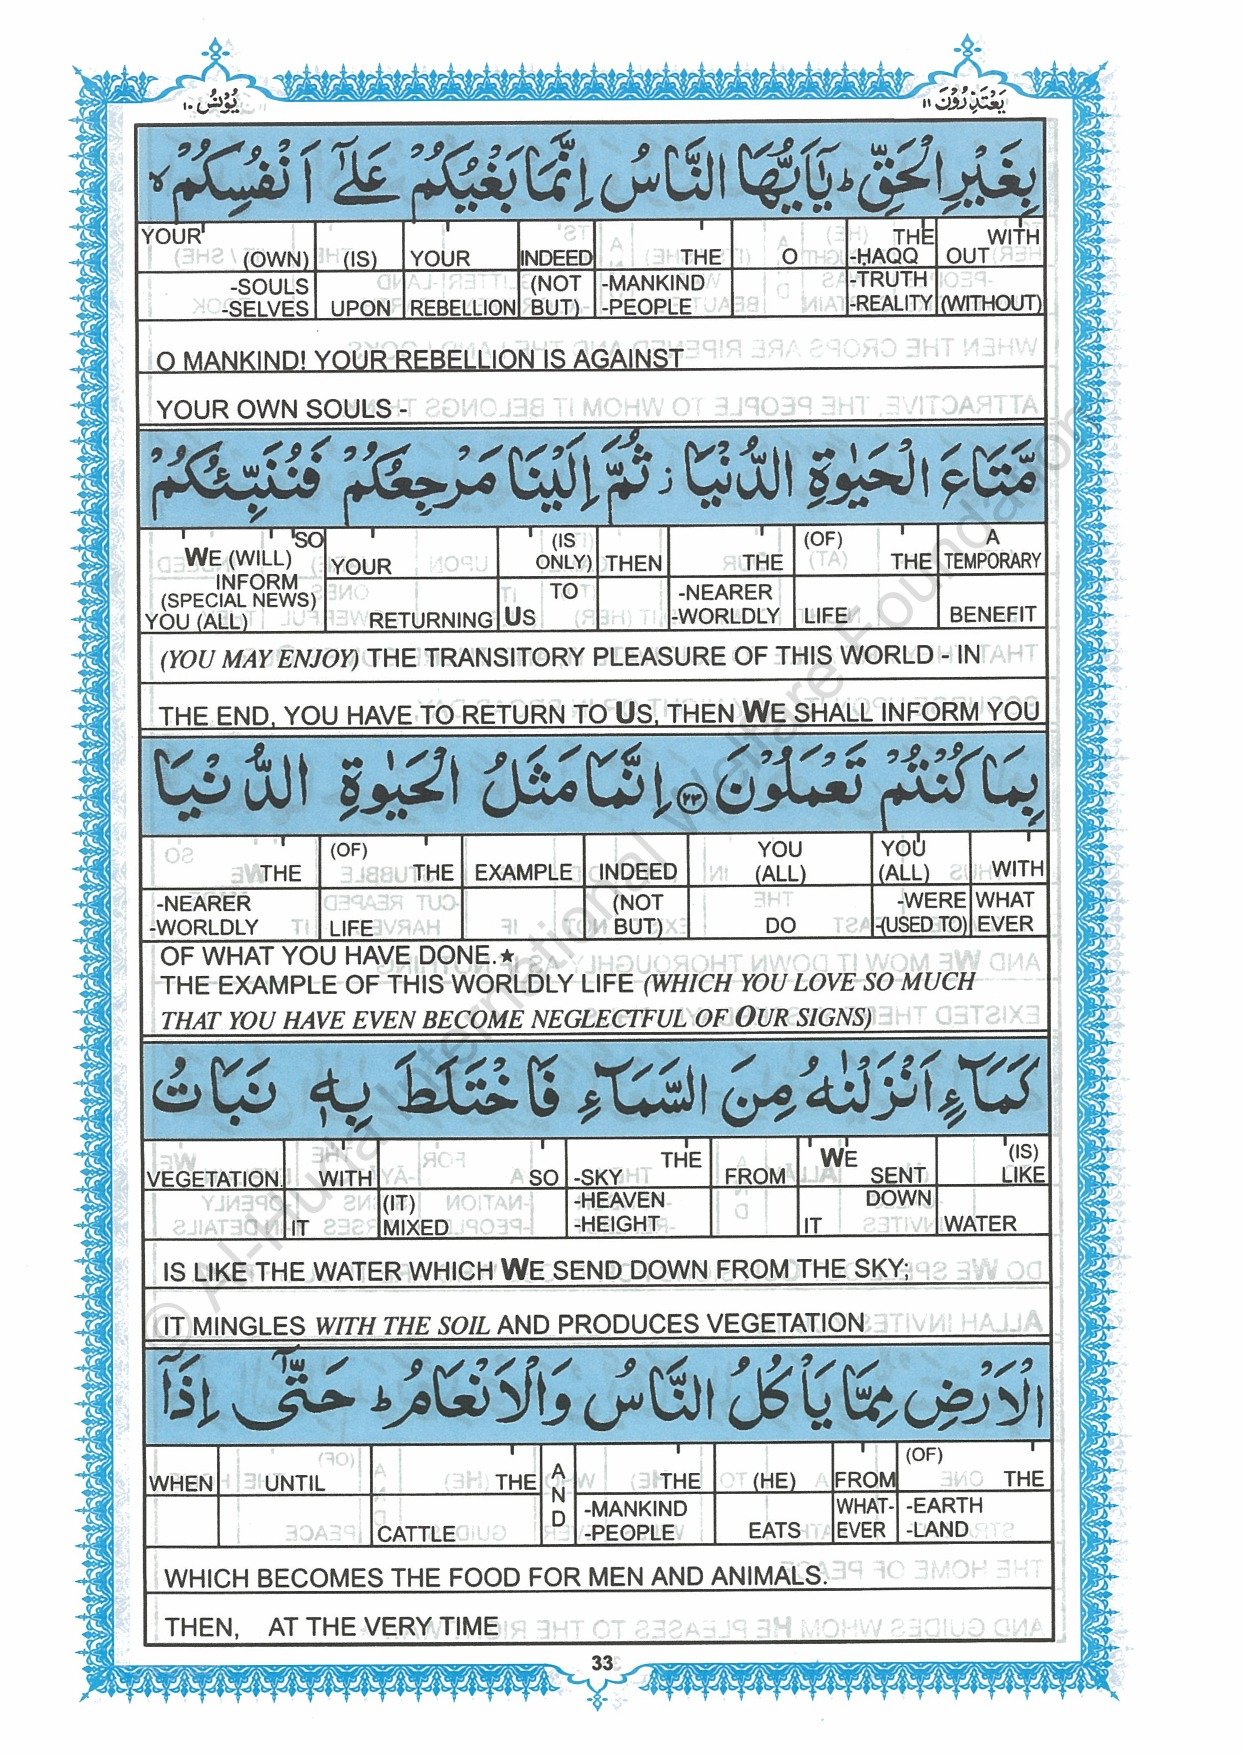 يَعْتَذِرُوْنَ ١١
يُوْنُس ١٠
بِغَيْرِ الْحَقِّ ؕ يٰۤاَيُّهَا النَّاسُ اِنَّمَا بَغْيُكُمْ عَلٰۤى اَنْفُسِكُمْ ۙ
YOUR (OWN) (IS) YOUR INDEED THE O THE -ḤAQQ WITH OUT
-SOULS -SELVES UPON REBELLION (NOT BUT) -MANKIND -PEOPLE -TRUTH -REALITY (WITHOUT)
O MANKIND! YOUR REBELLION IS AGAINST
YOUR OWN SOULS -
مَّتَاعَ الْحَيٰوةِ الدُّنْيَا ز ثُمَّ اِلَيْنَا مَرْجِعُكُمْ فَنُنَبِّئُكُمْ
SO WE (WILL) YOUR (IS ONLY) THEN THE (OF) THE A TEMPORARY
INFORM (SPECIAL NEWS) YOU (ALL) RETURNING TO US -NEARER -WORLDLY LIFE BENEFIT
(YOU MAY ENJOY) THE TRANSITORY PLEASURE OF THIS WORLD - IN
THE END, YOU HAVE TO RETURN TO US, THEN WE SHALL INFORM YOU
بِمَا كُنْتُمْ تَعْمَلُوْنَ ٢٣ اِنَّمَا مَثَلُ الْحَيٰوةِ الدُّنْيَا
THE (OF) THE EXAMPLE INDEED YOU (ALL) YOU (ALL) WITH
-NEARER -WORLDLY LIFE (NOT BUT) DO -WERE -(USED TO) WHAT EVER
OF WHAT YOU HAVE DONE.★
THE EXAMPLE OF THIS WORLDLY LIFE (WHICH YOU LOVE SO MUCH
THAT YOU HAVE EVEN BECOME NEGLECTFUL OF OUR SIGNS)
كَمَآءٍ اَنْزَلْنٰهُ مِنَ السَّمَآءِ فَاخْتَلَطَ بِهٖ نَبَاتُ
VEGETATION. WITH SO THE -SKY FROM WE SENT (IS) LIKE
IT (IT) MIXED -HEAVEN -HEIGHT DOWN IT WATER
IS LIKE THE WATER WHICH WE SEND DOWN FROM THE SKY;
IT MINGLES WITH THE SOIL AND PRODUCES VEGETATION
الْاَرْضِ مِمَّا يَاْكُلُ النَّاسُ وَالْاَنْعَامُ ؕ حَتّٰۤى اِذَاۤ
WHEN UNTIL THE AND THE (HE) FROM (OF) THE
CATTLE -MANKIND -PEOPLE EATS WHAT-EVER -EARTH -LAND
WHICH BECOMES THE FOOD FOR MEN AND ANIMALS.
THEN, AT THE VERY TIME
33
© Al-Huda International Welfare Foundation